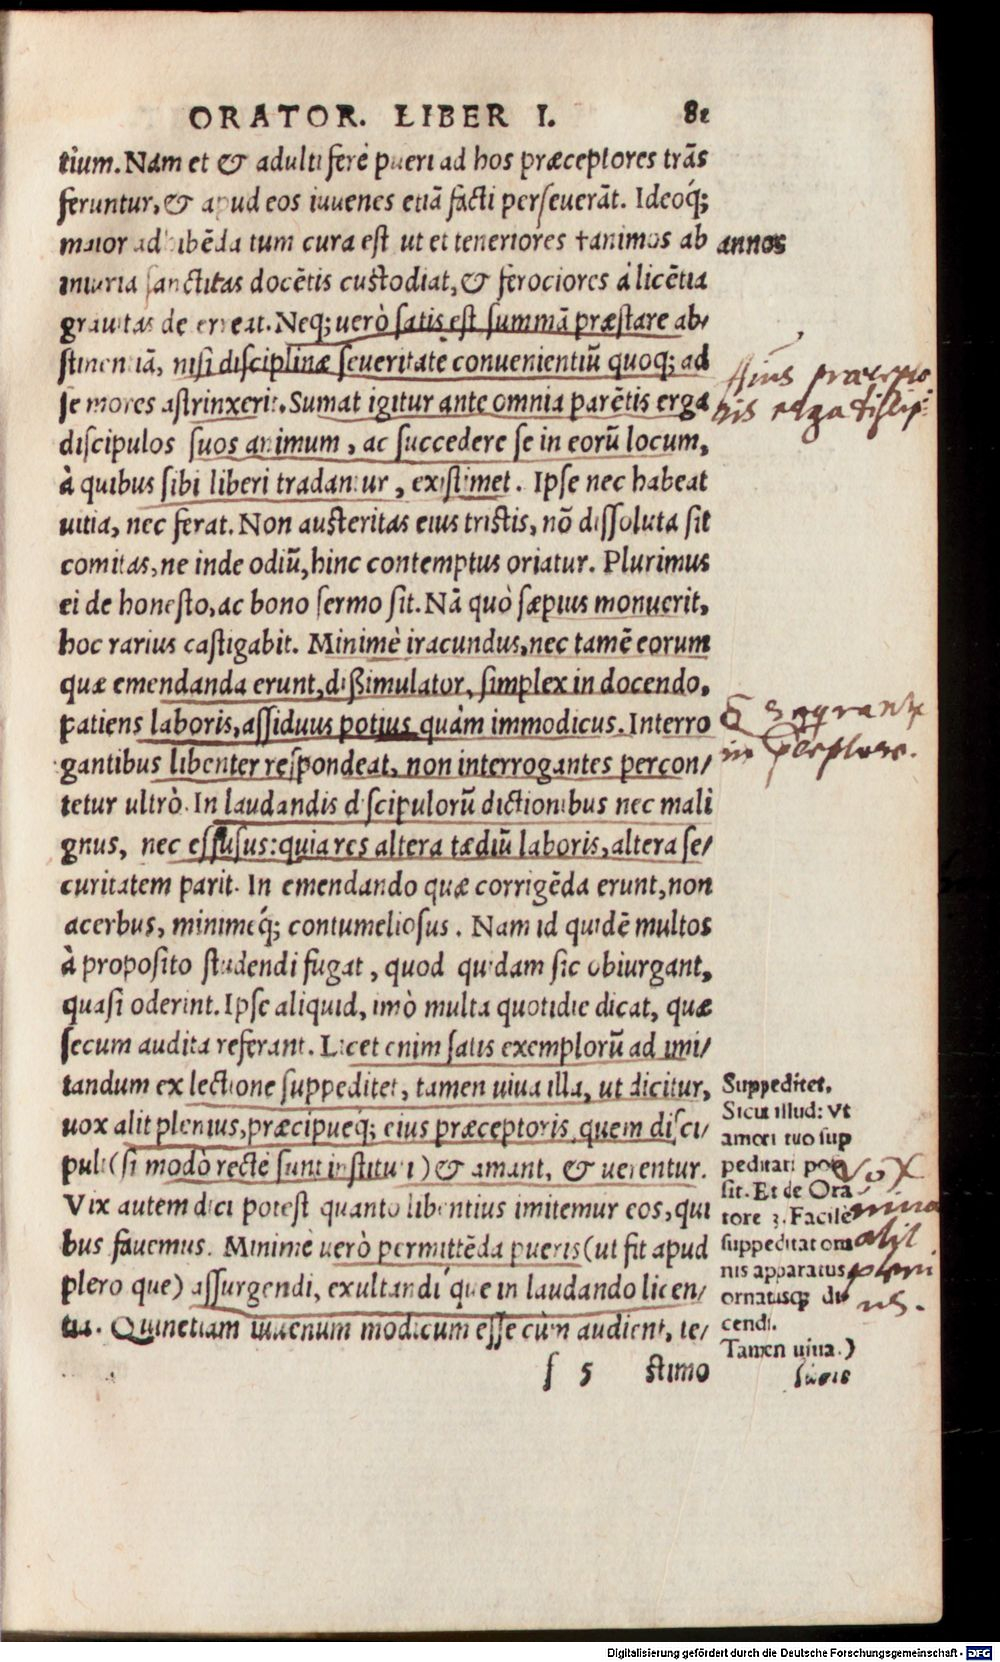 ORATOR. LIBER I. 81
tium. Nam et & adulti ferè pueri ad hos præceptores trãs
feruntur, & apud eos iuuenes etiã facti perseuerãt. Ideoq́;
maior adhibẽda tum cura est ut et teneriores †animos ab
iniuria sanctitas docẽtis custodiat, & ferociores à licẽtia
grauitas deterreat. Neq; uerò satis est summã præstare ab-
stinentiã, nisi disciplinæ seueritate conuenientiũ quoq; ad
se mores astrinxerit. Sumat igitur ante omnia parẽtis erga
discipulos suos animum, ac succedere se in eorũ locum,
à quibus sibi liberi tradantur, existimet. Ipse nec habeat
uitia, nec ferat. Non austeritas eius tristis, nõ dissoluta sit
comitas, ne inde odiũ, hinc contemptus oriatur. Plurimus
ei de honesto, ac bono sermo sit. Nã quò sæpius monuerit,
hoc rarius castigabit. Minimè iracundus, nec tamẽ eorum
quæ emendanda erunt, dißimulator, simplex in docendo,
patiens laboris, assiduus potius quàm immodicus. Interro
gantibus libenter respondeat, non interrogantes percon-
tetur ultrò. In laudandis discipulorũ dictionibus nec mali
gnus, nec effusus: quia res altera tædiũ laboris, altera se-
curitatem parit. In emendando quæ corrigẽda erunt, non
acerbus, minimeq́; contumeliosus. Nam id quidẽ multos
à proposito studendi fugat, quod quidam sic obiurgant,
quasi oderint. Ipse aliquid, imò multa quotidie dicat, quæ
secum audita referant. Licet enim satis exemplorũ ad imi-
tandum ex lectione suppeditet, tamen uiua illa, ut dicitur,
uox alit plenius, præcipueq́; eius præceptoris, quem disci-
puli (si modò rectè sunt instituti) & amant, & uerentur.
Vix autem dici potest quanto libentius imitemur eos, qui
bus fauemus. Minimè uerò permittẽda pueris (ut fit apud
plero que) assurgendi, exultandi que in laudando licen-
tia. Quinetiam iuuenum modicum esse cùm audient, te-
s 5 stimo
annos
præcepto
ris erga discip
in
Suppeditet.
Sicut illud: Vt
amori tuo sup
peditari pos
sit. Et de Ora
tore 3. Facilè
suppeditat om
nis apparatus
ornatusq; di
cendi.
Tamen uiua.)
suois
Vox
uiua
alit
pleni
us.
Digitalisierung gefördert durch die Deutsche Forschungsgemeinschaft - DFG